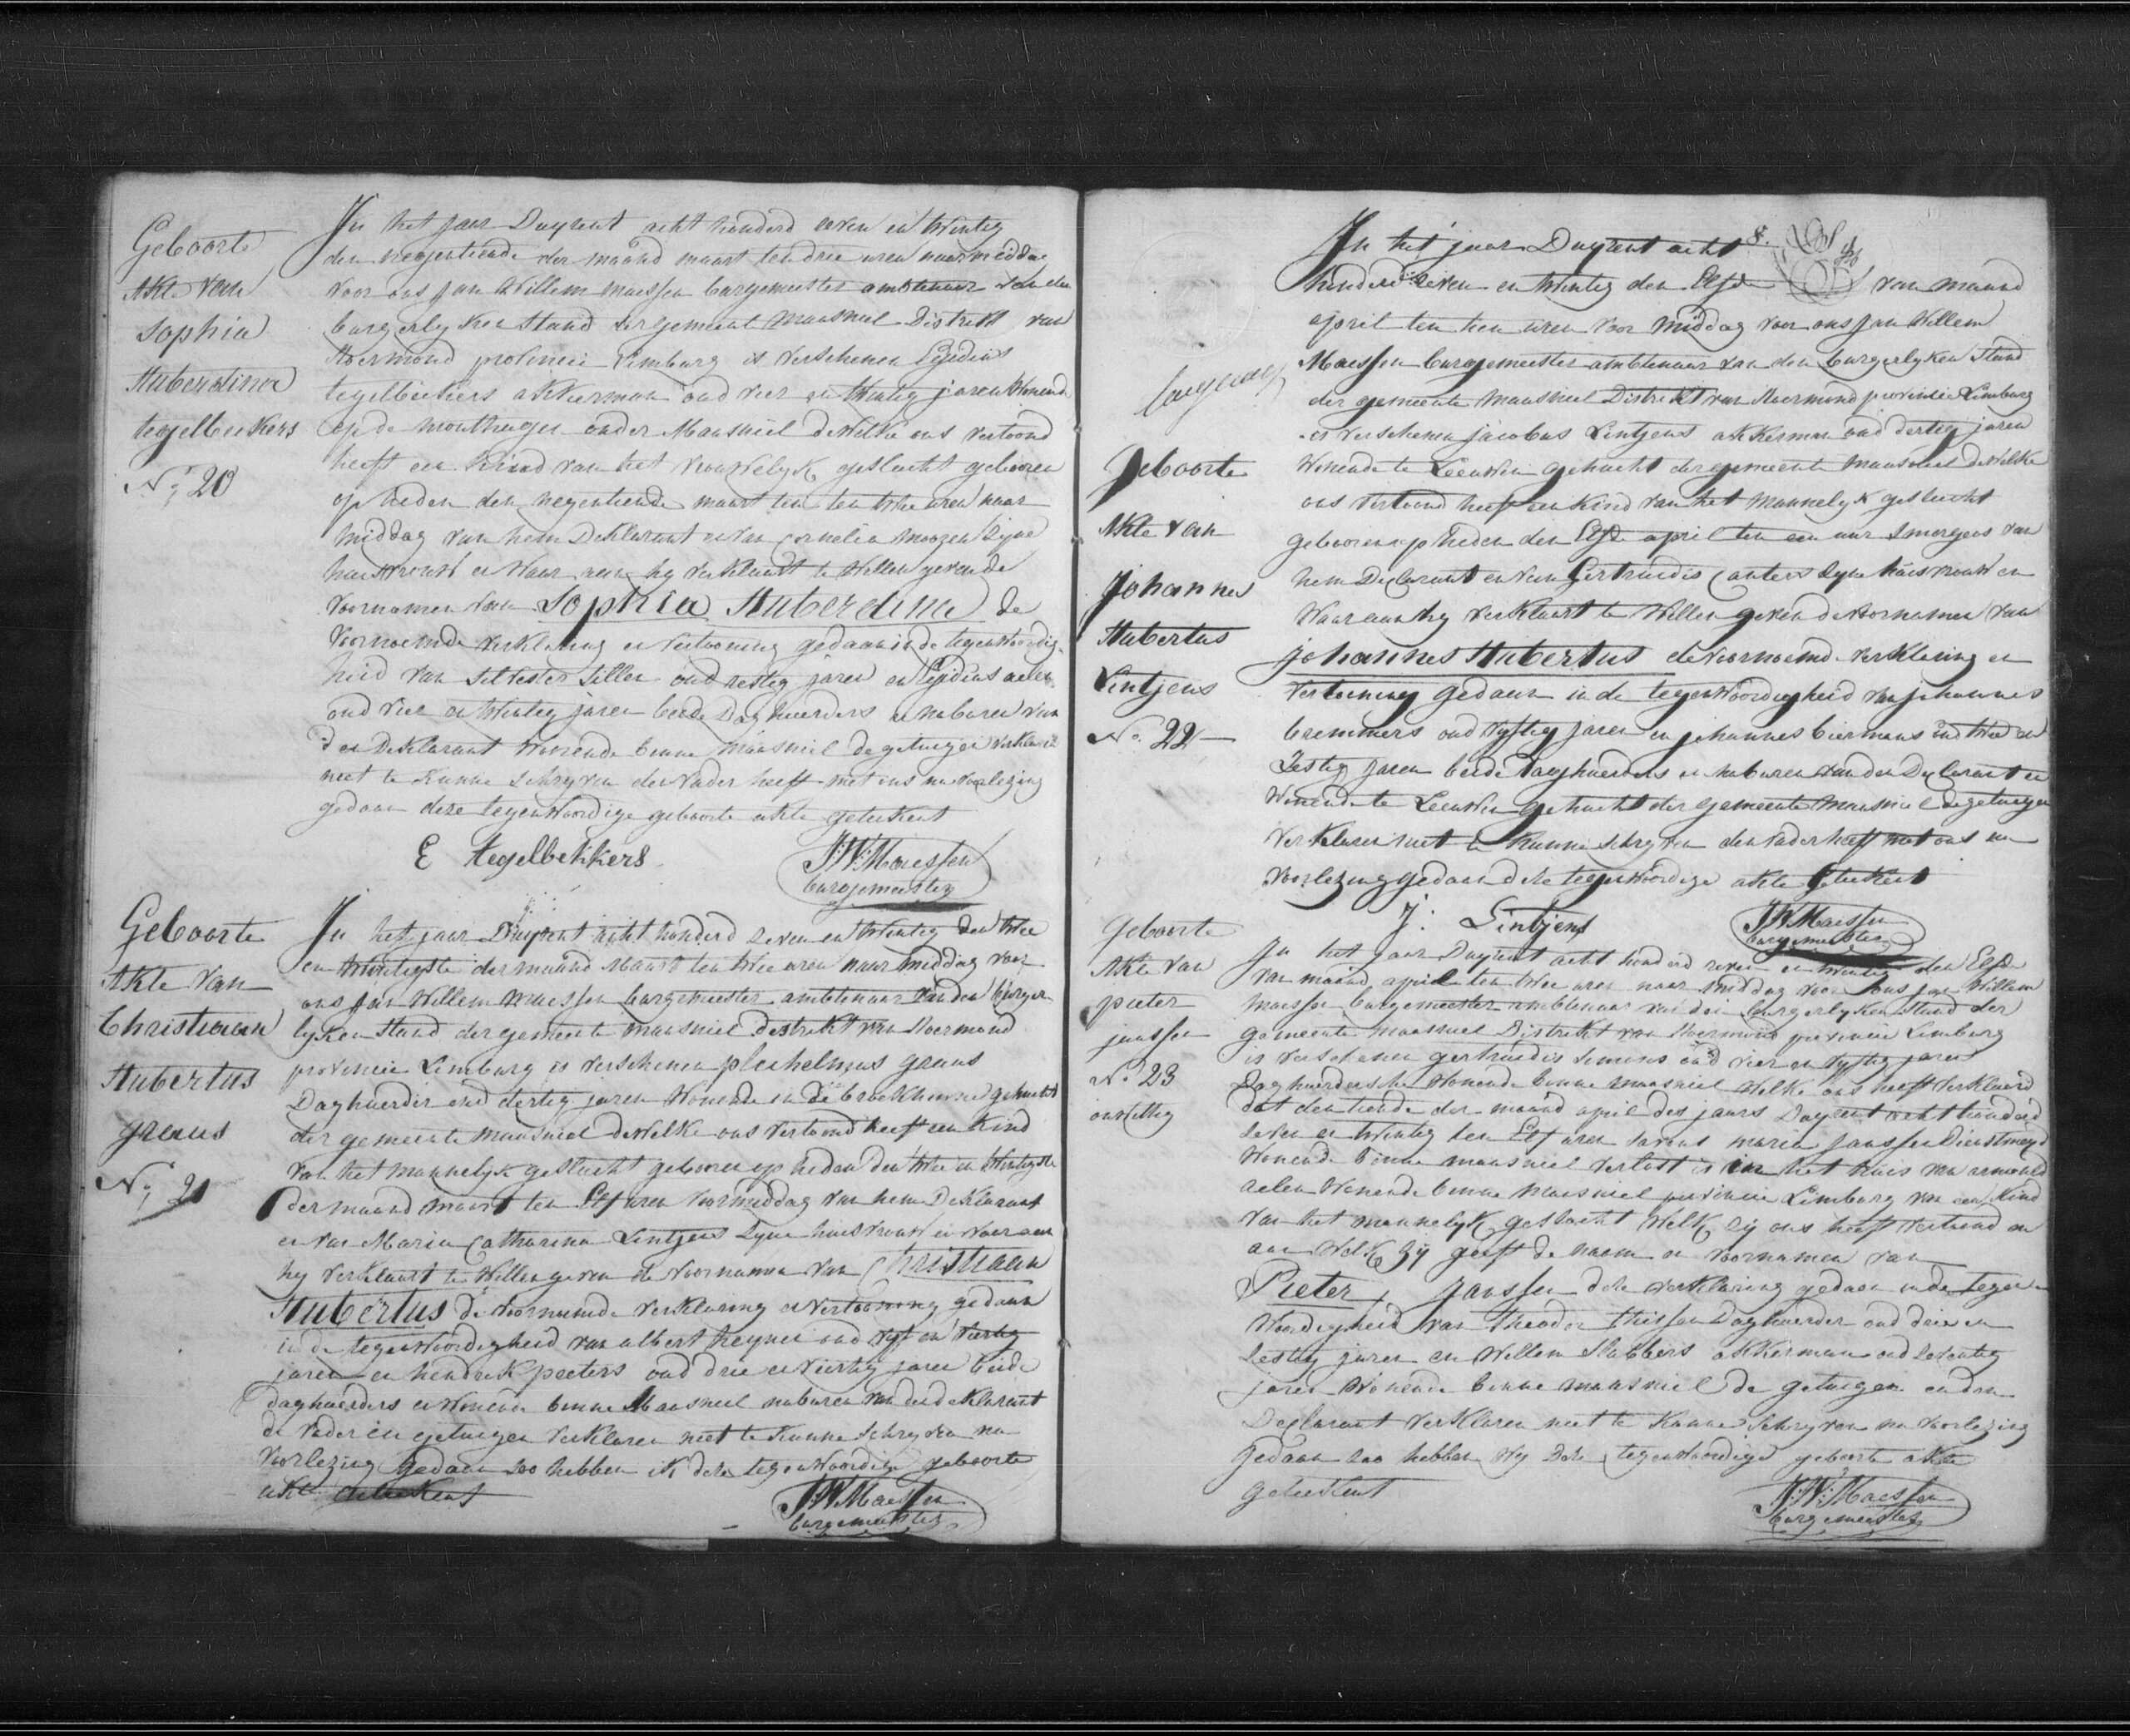 Geboorte
Akte van
Sophia
Huberdina
tegelbeckers
No; 20
In het jaar Duyzent acht honderd zeven en twintig
den negentiende der maand maart ten drie uren naarmiddag
voor ons Jan Willem Maessen burgemeester ambtenaar van den
burgerlyken stand der gemeente Maasniel Distrikt van
Roermond provincie Limburg is verschenen Egidius
tegelbeckers akkerman oud vier en twintig jaren wonende
op de onder Maasniel dewelke ons vertoond
heeft een kind van het vrouwelyk geslacht gebooren
op heden den negentiende maart ten ten twee uren naar
middag van hem Deklarant en van Cornelia moozen zyne
huisvrouw en waar aen hy verklaart te willen geven de
voornamen van Sophia Huberdina de
voornoemde verklaring en vertooning gedaan in de tegenwoordig-
heid van Silvester Sillen oud zestig jaren en Egidius aelen
oud vier en twintig jaren beide Daghuerders en naburen van
den Deklarant wonende binne Maasniel de getuigen verklaren
niet te kunne schryven den vader heeft met ons na voorlezing
gedaan deze tegenwoordige geboorte akte geteekent
E tegelbekkers
J:W:Maessen
burgemeester
Geboorte
Akte van
Christiaan
Hubertus
graus
No; 21
In het jaar Duyzent acht honderd zeven en twintig den twee
en twintigste der maand Maart ten twee uren naar middag voor
ons jan Willem maessen burgemeester ambtenaar van den burger
lyken stand der gemeente maasniel distrikt van Roermond
provincie Limburg is verschenen plechelmus graus
Daghuerder oud dertig jaren wonende in de gehucht
der gemeente maasniel dewelke ons vertoond heeft een kind
van het mannelyk geslacht gebooren op heden den twee en twintigste
der maand maart ten Elf uren voormiddag van hem Deklarant
en van Maria Catharina Lintjens zyne huisvrouw en waar aen
hy verklaart te willen geven de voornamen van Christiaan
Hubertus de voornoemde verklaring en vertooning gedaan
in de tegenwoordigheid van albert heynen oud vyf en veertig
jaren en hendrik peeters oud drie en veertig jaren beide
daghuerders en wonende binne Maasniel naburen van den deklarant
de vader en getuigen verklaren niet te kunne schryven na
voorlezing gedaan zoo hebben ik deze tegenwoordige geboorte
akte geteekent
J:W:Maessen
burgemeester
Geboorte
Akte van
Johannes
Hubertus
Lintjens
No. 22
In het jaar Duyzent acht
honderd zeven en twintig den Elfde van maand
april ten tien uren voor middag voor ons Jan Willem
Maessen burgemeester ambtenaar van den burgerlyken stand
der gemeente maasniel Distrikt van Roermond provincie Limburg
is verschenen jacobus Lintjens akkerman oud dertig jaren
wonende te Leeuwen gehucht der gemeente maasniel dewelke
ons vertoond heeft een kind van het mannelyk geslacht
gebooren op heden den Elfde april ten een uur smorgens van
hem Declarant en van Gertrudis Canters zyne huisvrouw en
waar aan hy verklaart te willen geven de voornamen van
johannes Hubertus de voornoemde verklaring en
vertooning gedaan in de tegenwoordigheid van johannes
bremmers oud vyftig jaren en johannes biermans oud twee en
zestig jaren beide daghuerders en naburen van den Declarant en
wonende te Leeuwen gehucht der gemeente maasniel de getuigen
verklaren niet te kunne schryven den vader heeft met ons na
voorlezing gedaan deze tegenwoordige akte geteekent
J: Lintjens
J:W:Maessen
burgemeester
Geboorte
Akte van
pieter
janssen
No. 23
onwettig
In het jaar Duyzent acht honderd zeven en twintig den Elfde
van maand april ten twee uren naar middag voor ons jan Willem
maessen burgemeester ambtenaar van den burgerlyken stand der
gemeente maasniel Distrikt van Roermond provincie Limburg
is verschenen gertrudis simons oud vier en vyftig jaren
Daghuerdersche wonende binne maasniel welke ons heeft verklaerd
dat den tiende der maand april des jaars Duyzent acht honderd
zeven en twintig ten Elf uren savens maria janssen dienstmeyd
wonende binne maasniel verlost is in het huis van arnold
aelen wonende binne maasniel provincie Limburg van een kind
van het mannelyk geslacht welk zy ons heeft vertoond en
aan welk zy geeft de naam en voornamen van
Pieter, janssen deze verklaring gedaen in de tegen-
woordigheid van Theodor thissen Daghuerder oud drie en
zestig jaren en Willem Slabbers akkerman oud zeventig
jaren wonende binne maasniel de getuigen en den
Declarant verklaren niet te kunne schryven na voorlezing
gedaan zoo hebben wy deze tegenwoordige geboorte akte
geteekent
J:W:Maessen
burgemeester